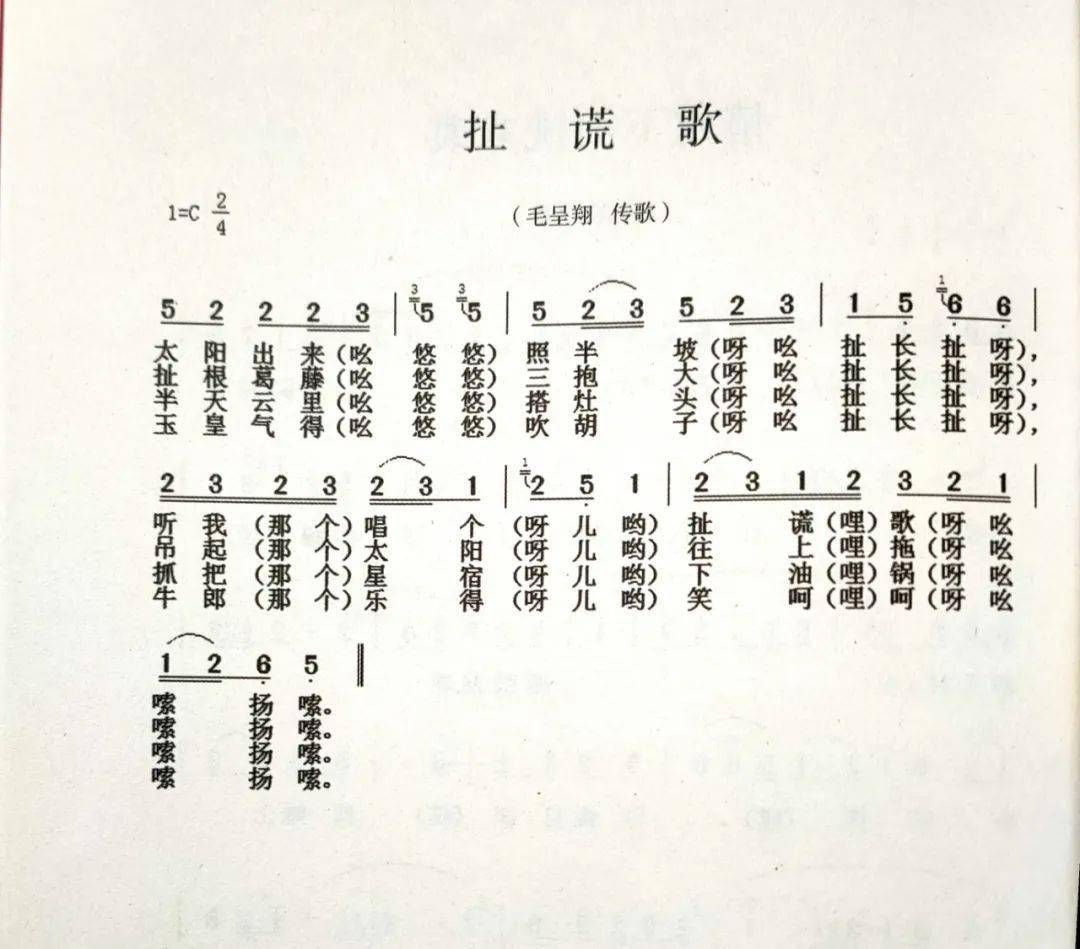 扯谎歌
1=C 2/4
（毛呈翔 传歌）
5 2 2 2 3 | 3 5 3 5 | 5 2 3 5 2 3 | 1 5 1 6 6 |
太阳出来(吆 悠 悠)照半坡(呀吆 扯长扯呀),
扯根葛藤(吆 悠 悠)三抱大(呀吆 扯长扯呀),
半天云里(吆 悠 悠)搭灶头(呀吆 扯长扯呀),
玉皇气得(吆 悠 悠)吹胡子(呀吆 扯长扯呀),
2 3 2 3 2 3 1 | 1 2 5 1 | 2 3 1 2 3 2 1 |
听我(那个)唱个(呀儿哟)扯谎(哩)歌(呀吆
吊起(那个)太阳(呀儿哟)往上(哩)拖(呀吆
抓把(那个)星宿(呀儿哟)下油(哩)锅(呀吆
牛郎(那个)乐得(呀儿哟)笑呵(哩)呵(呀吆
1 2 6 5
嗦扬嗦。
嗦扬嗦。
嗦扬嗦。
嗦扬嗦。